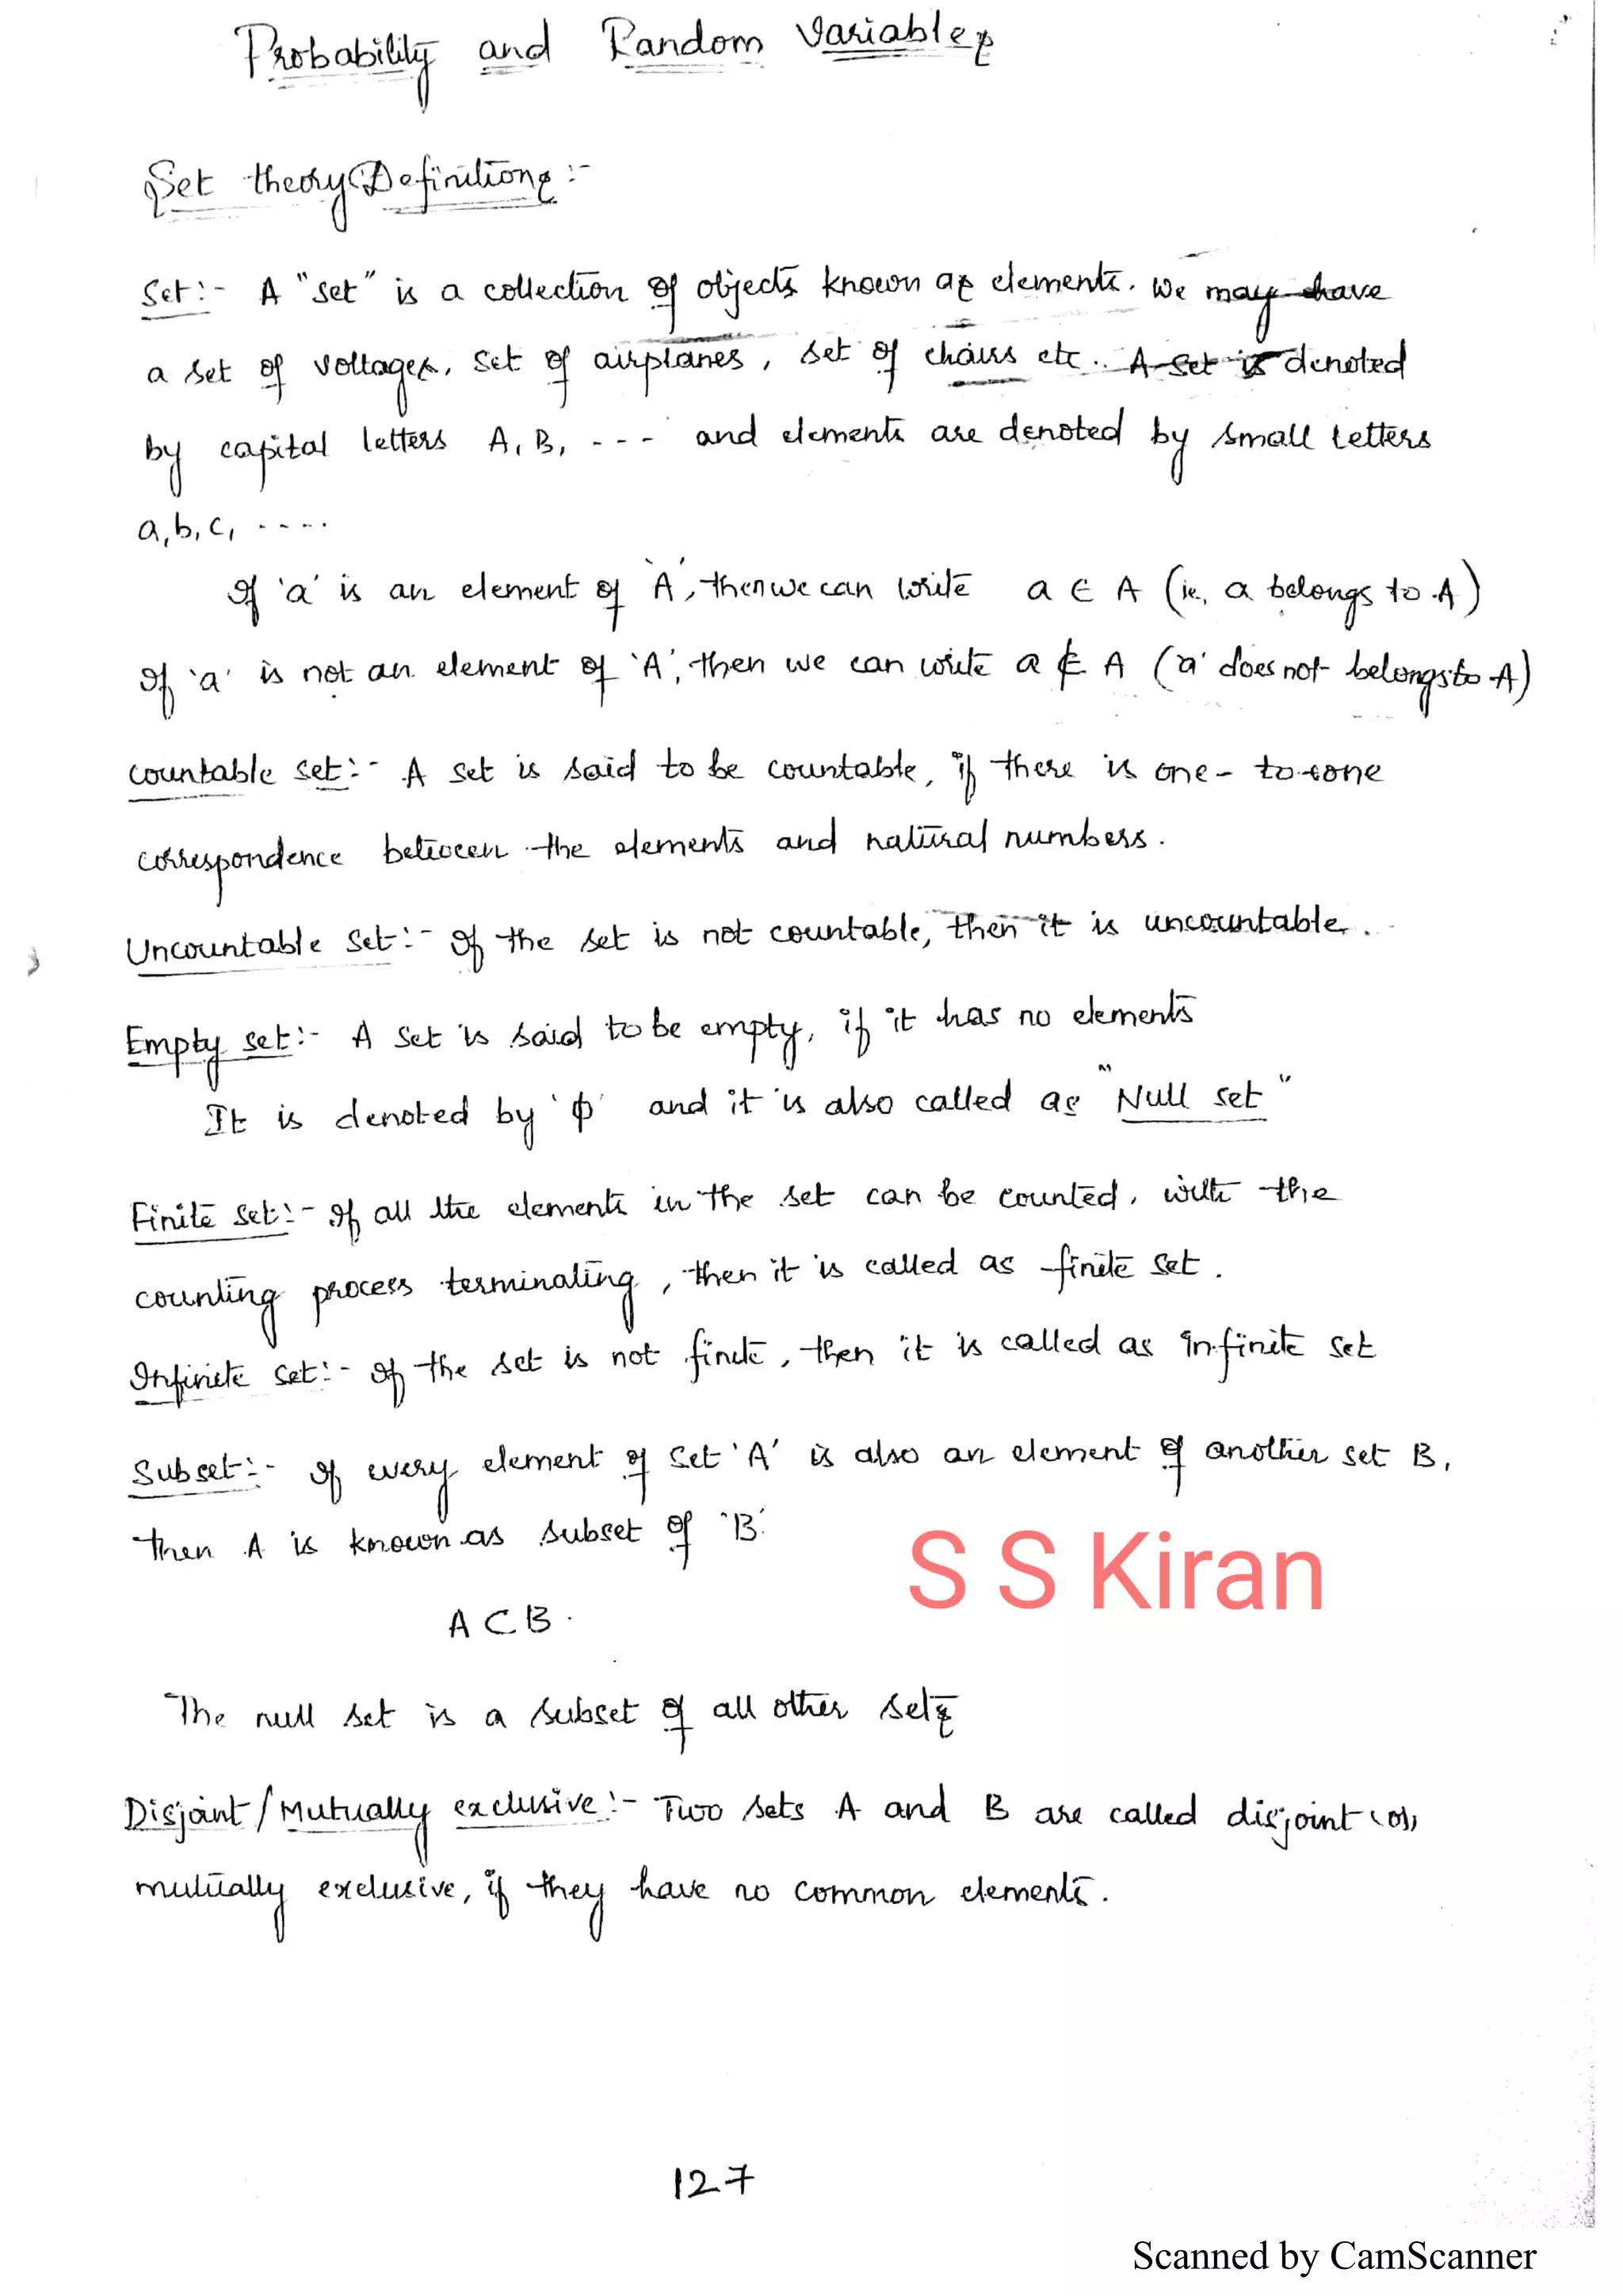 Probability and Random Variables
Set theory Definitions :-
Set :- A "set" is a collection of objects known as elements. We may have
a set of voltages, set of airplanes, set of chairs etc. A set is denoted
by capital letters A, B, --- and elements are denoted by small letters
a, b, c, ----.
If 'a' is an element of 'A', then we can write a ∈ A (ie, a belongs to A)
If 'a' is not an element of 'A', then we can write a ∉ A ('a' does not belongs to A)
countable set :- A set is said to be countable, if there is one-to-one
correspondence between the elements and natural numbers.
Uncountable set :- If the set is not countable, then it is uncountable.
Empty set :- A set is said to be empty, if it has no elements
It is denoted by 'ϕ' and it is also called as "Null set"
Finite set :- If all the elements in the set can be counted, with the
counting process terminating, then it is called as finite set.
Infinite set :- If the set is not finite, then it is called as infinite set
Subset :- If every element of set 'A' is also an element of another set B,
then A is known as subset of 'B'
S S Kiran
A ⊂ B.
The null set is a subset of all other sets
Disjoint / Mutually exclusive :- Two sets A and B are called disjoint (or)
mutually exclusive, if they have no common elements.
127
Scanned by CamScanner